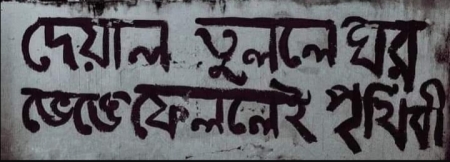 দেয়াল তুললে ঘর
ভেঙে ফেললেই পৃথিবী